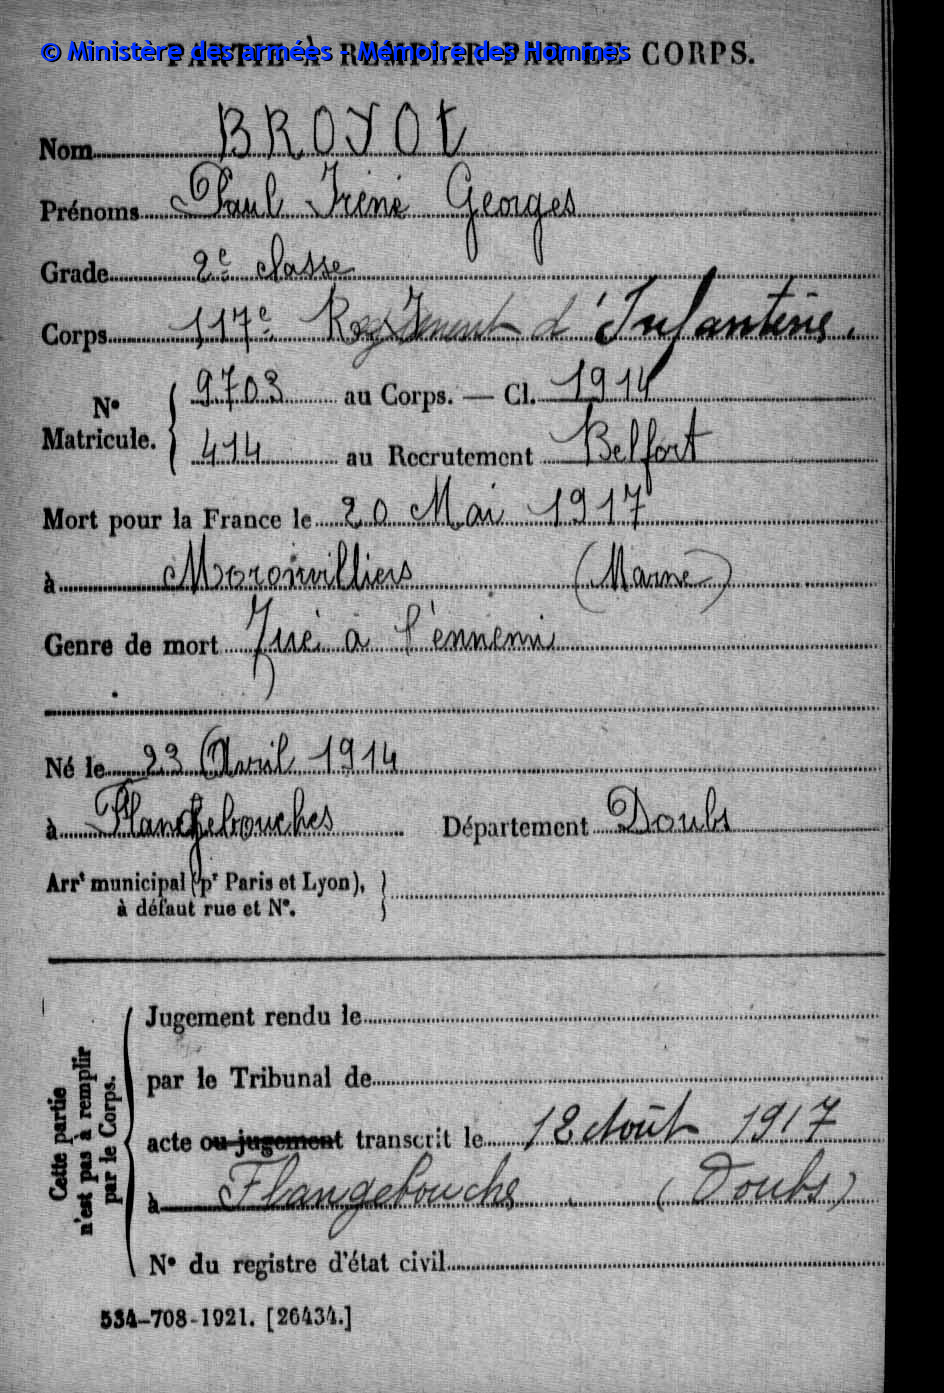 © Ministère des armées - Mémoire des Hommes
PARTIE À REMPLIR PAR LE CORPS.
Nom BROYOt
Prénoms Paul Iréné Georges
Grade 2e classe
Corps 117e Regiment d'Infanterie.
N° Matricule. 9703 au Corps. — Cl. 1914
414 au Recrutement Belfort
Mort pour la France le 20 Mai 1917
à Moronvilliers (Marne)
Genre de mort Tué à l'ennemi
Né le 23 Avril 1914
à Flangebouches Département Doubs
Arrt municipal (pr Paris et Lyon),
à défaut rue et N°.
Cette partie
n'est pas à remplir
par le Corps.
Jugement rendu le
par le Tribunal de
acte ou jugement transcrit le 12 Août 1917
à Flangebouche (Doubs)
N° du registre d'état civil
534-708-1921. [26434.]